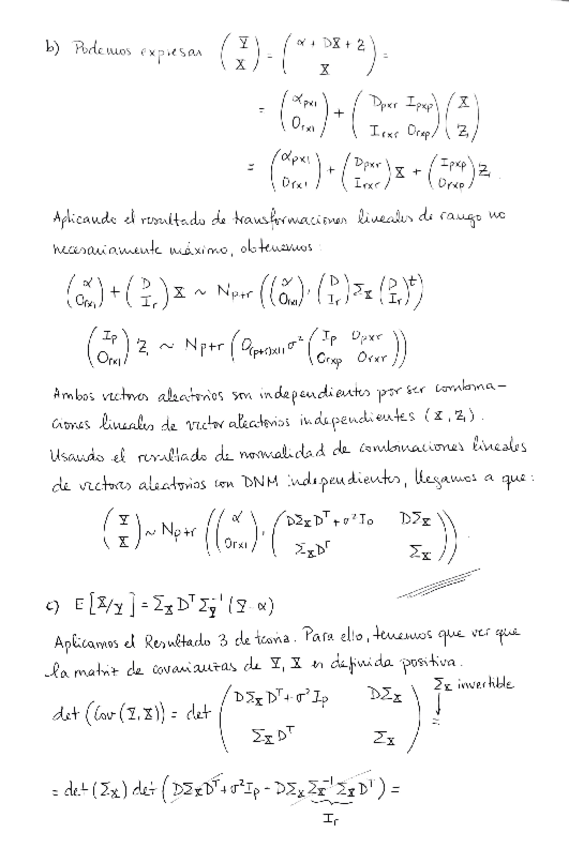 b) Podemos expresar (Y X) = (α + DX + Z X) =
= (α_{px1} 0_{rx1}) + (D_{pxr} I_{pxp} I_{rxr} 0_{rxp}) (X Z)
= (α_{px1} 0_{rx1}) + (D_{pxr} I_{rxr}) X + (I_{pxp} 0_{rxp}) Z.
Aplicando el resultado de transformaciones lineales de rango no
necesariamente máximo, obtenemos:
(α 0_{rx1}) + (D I_r) X ~ N_{p+r} ((α 0_{rx1}), (D I_r) Σ_X (D I_r)^t)
(I_p 0_{rx1}) Z ~ N_{p+r} (0_{(p+r)x1}, σ² (I_p 0_{pxr} 0_{rxp} 0_{rxr}))
Ambos vectores aleatorios son independientes por ser combina-
ciones lineales de vector aleatorios independientes (X, Z).
Usando el resultado de normalidad de combinaciones lineales
de vectores aleatorios con DNM independientes, llegamos a que:
(Y X) ~ N_{p+r} ((α 0_{rx1}), (DΣ_X D^T + σ² I_p DΣ_X Σ_X D^T Σ_X)).
c) E[X/Y] = Σ_X D^T Σ_Y^{-1} (Y - α)
Aplicamos el Resultado 3 de teoría. Para ello, tenemos que ver que
la matriz de covarianzas de Y, X es definida positiva.
det (Cov (Y, X)) = det (DΣ_X D^T + σ² I_p DΣ_X Σ_X D^T Σ_X) = Σ_X invertible ↓
= det (Σ_X) det (DΣ_X D^T + σ² I_p - DΣ_X Σ_X^{-1} Σ_X D^T) =
I_r